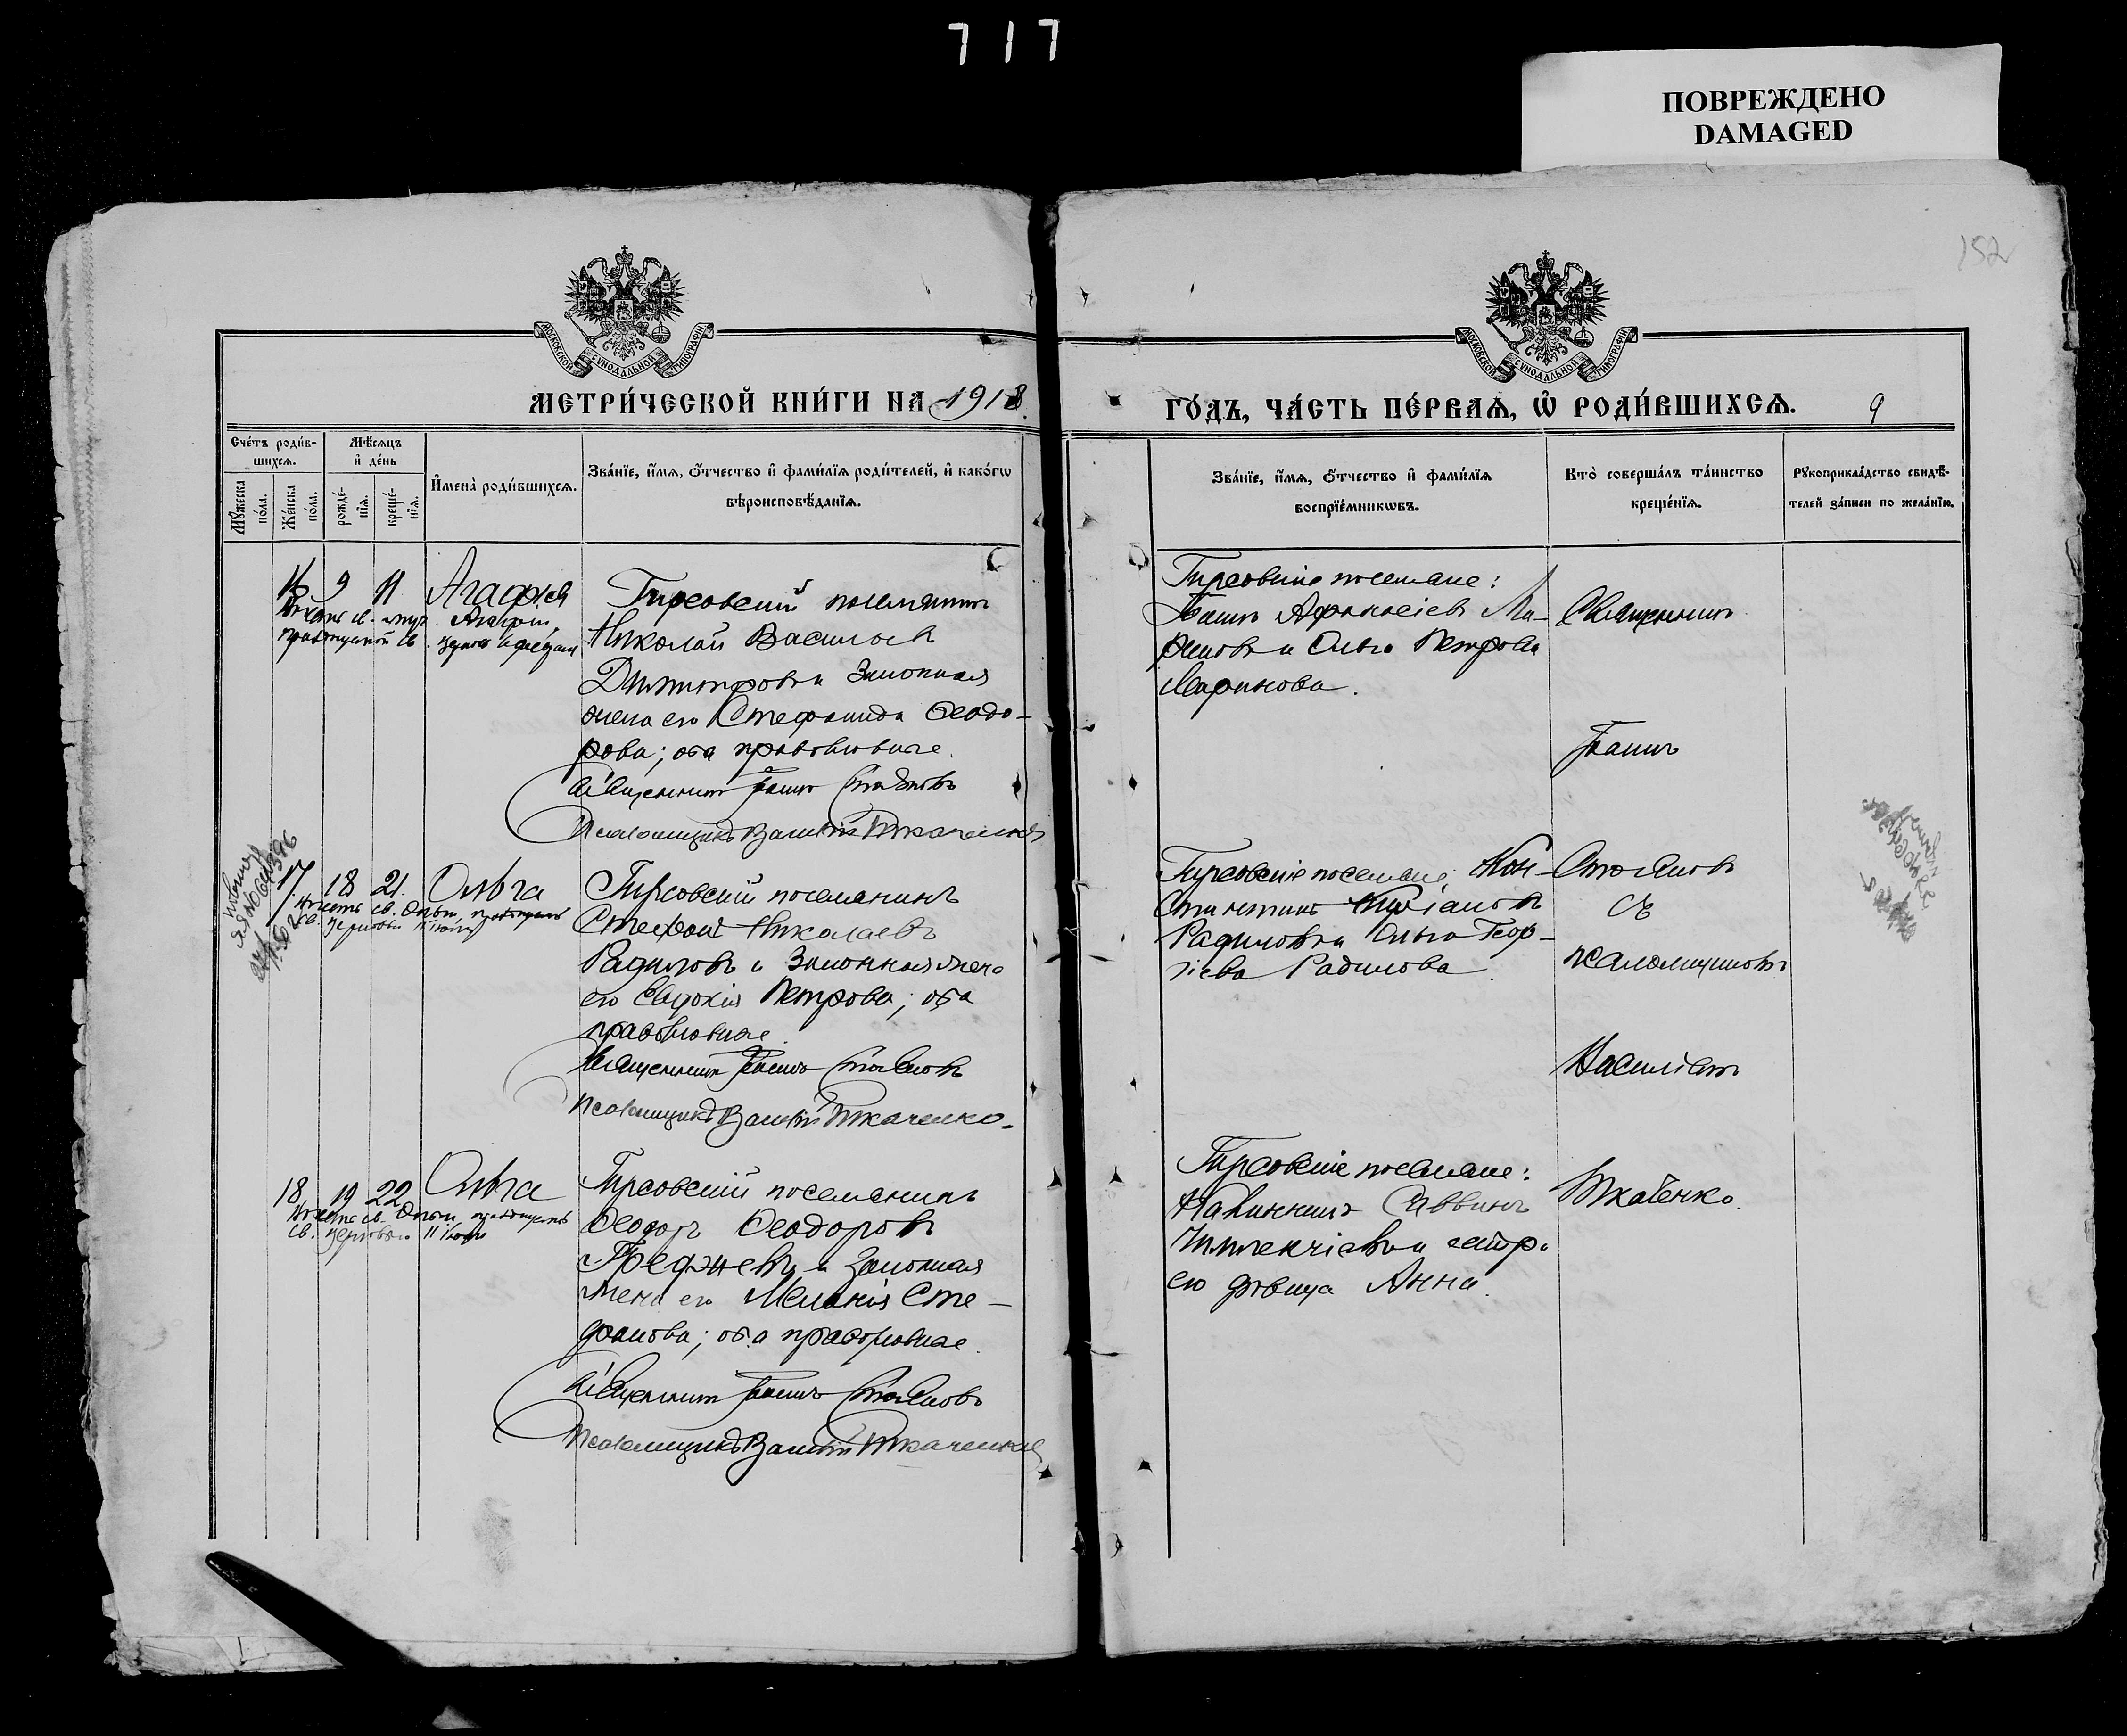 717
ПОВРЕЖДЕНО
DAMAGED
152
МОСКОВСКОЙ СУНОДАЛЬНОЙ ТИПОГРАФІИ
МОСКОВСКОЙ СУНОДАЛЬНОЙ ТИПОГРАФІИ
МЕТРИ́ЧЕСКОЙ КНИ́ГИ НА 1918
ГО́ДЪ, ЧА́СТЬ ПЕ́РВАѦ, Ѡ҆ РОДИ́ВШИХСѦ.
9
Сче́тъ роди́в-
шихсѧ.
Мѣ́сѧцъ
и҆ де́нь
Мꙋ́жеска
по́ла.
Же́нска
по́ла.
рожде́-
нїѧ.
креще́-
нїѧ.
И҆мена̀ роди́вшихсѧ.
Зва́нїе, и҆́мѧ, ѻ҆́тчество и҆ фами́лїѧ роди́телей, и҆ како́гѡ
вѣроисповѣ́данїѧ.
Зва́нїе, и҆́мѧ, ѻ҆́тчество и҆ фами́лїѧ
воспрїе́мникѡвъ.
Кто̀ соверша́лъ та́инство
креще́нїѧ.
Рꙋкоприкла́дство свидѣ́-
телей за́писи по жела́нїю.
16 9 11 Агафія
Гирсовскій поселянинъ
Николай Васильевъ
Димитровъ и законная
жена его Стефанида Ѳеодо-
рова; оба православные.
Священникъ Іоаннъ Стояновъ
Псаломщикъ Василій Ткаченко
Гирсовскіе поселяне:
Іоаннъ Афанасіевъ Ма-
риновъ и Ольга Петрова
Маринова.
Священникъ
Іоаннъ
17 18 21. Ольга
Гирсовскій поселянинъ
Стефанъ Николаевъ
Радиловъ и законная жена
его Евдокія Петрова; оба
православные.
Священникъ Іоаннъ Стояновъ
Псаломщикъ Василій Ткаченко.
Гирсовскіе поселяне: Кон-
стантинъ
Радиловъ и Ольга Геор-
гіева Радилова.
Стояновъ
съ
псаломщикомъ
Василіемъ
18 19 22 Ольга
Гирсовскій поселянинъ
Ѳеодоръ Ѳеодоровъ
и законная
жена его Меланія Сте-
фанова; оба православные.
Священникъ Іоаннъ Стояновъ
Псаломщикъ Василій Ткаченко
Гирсовскіе поселяне:
Саввинъ
и сестра
его дѣвица Анна.
Ткаченко.